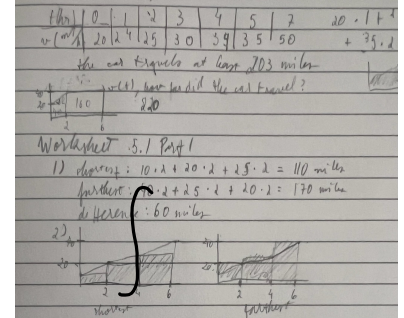 t(hr) 0 1 2 3 4 5 7 20 . 1 +
v(m/h) 20 24 25 30 34 35 50 + 35 . 2
the car travels at least 203 miles
v(t), how far did the car travel?
40
20 160 220
2 6
Worksheet 5.1 Part 1
1) shortest: 10 . 2 + 20 . 2 + 25 . 2 = 110 miles
furthest: 40 . 2 + 25 . 2 + 20 . 2 = 170 miles
difference: 60 miles
2) 40 40
20 20
2 4 6 2 4 6
shortest farthest